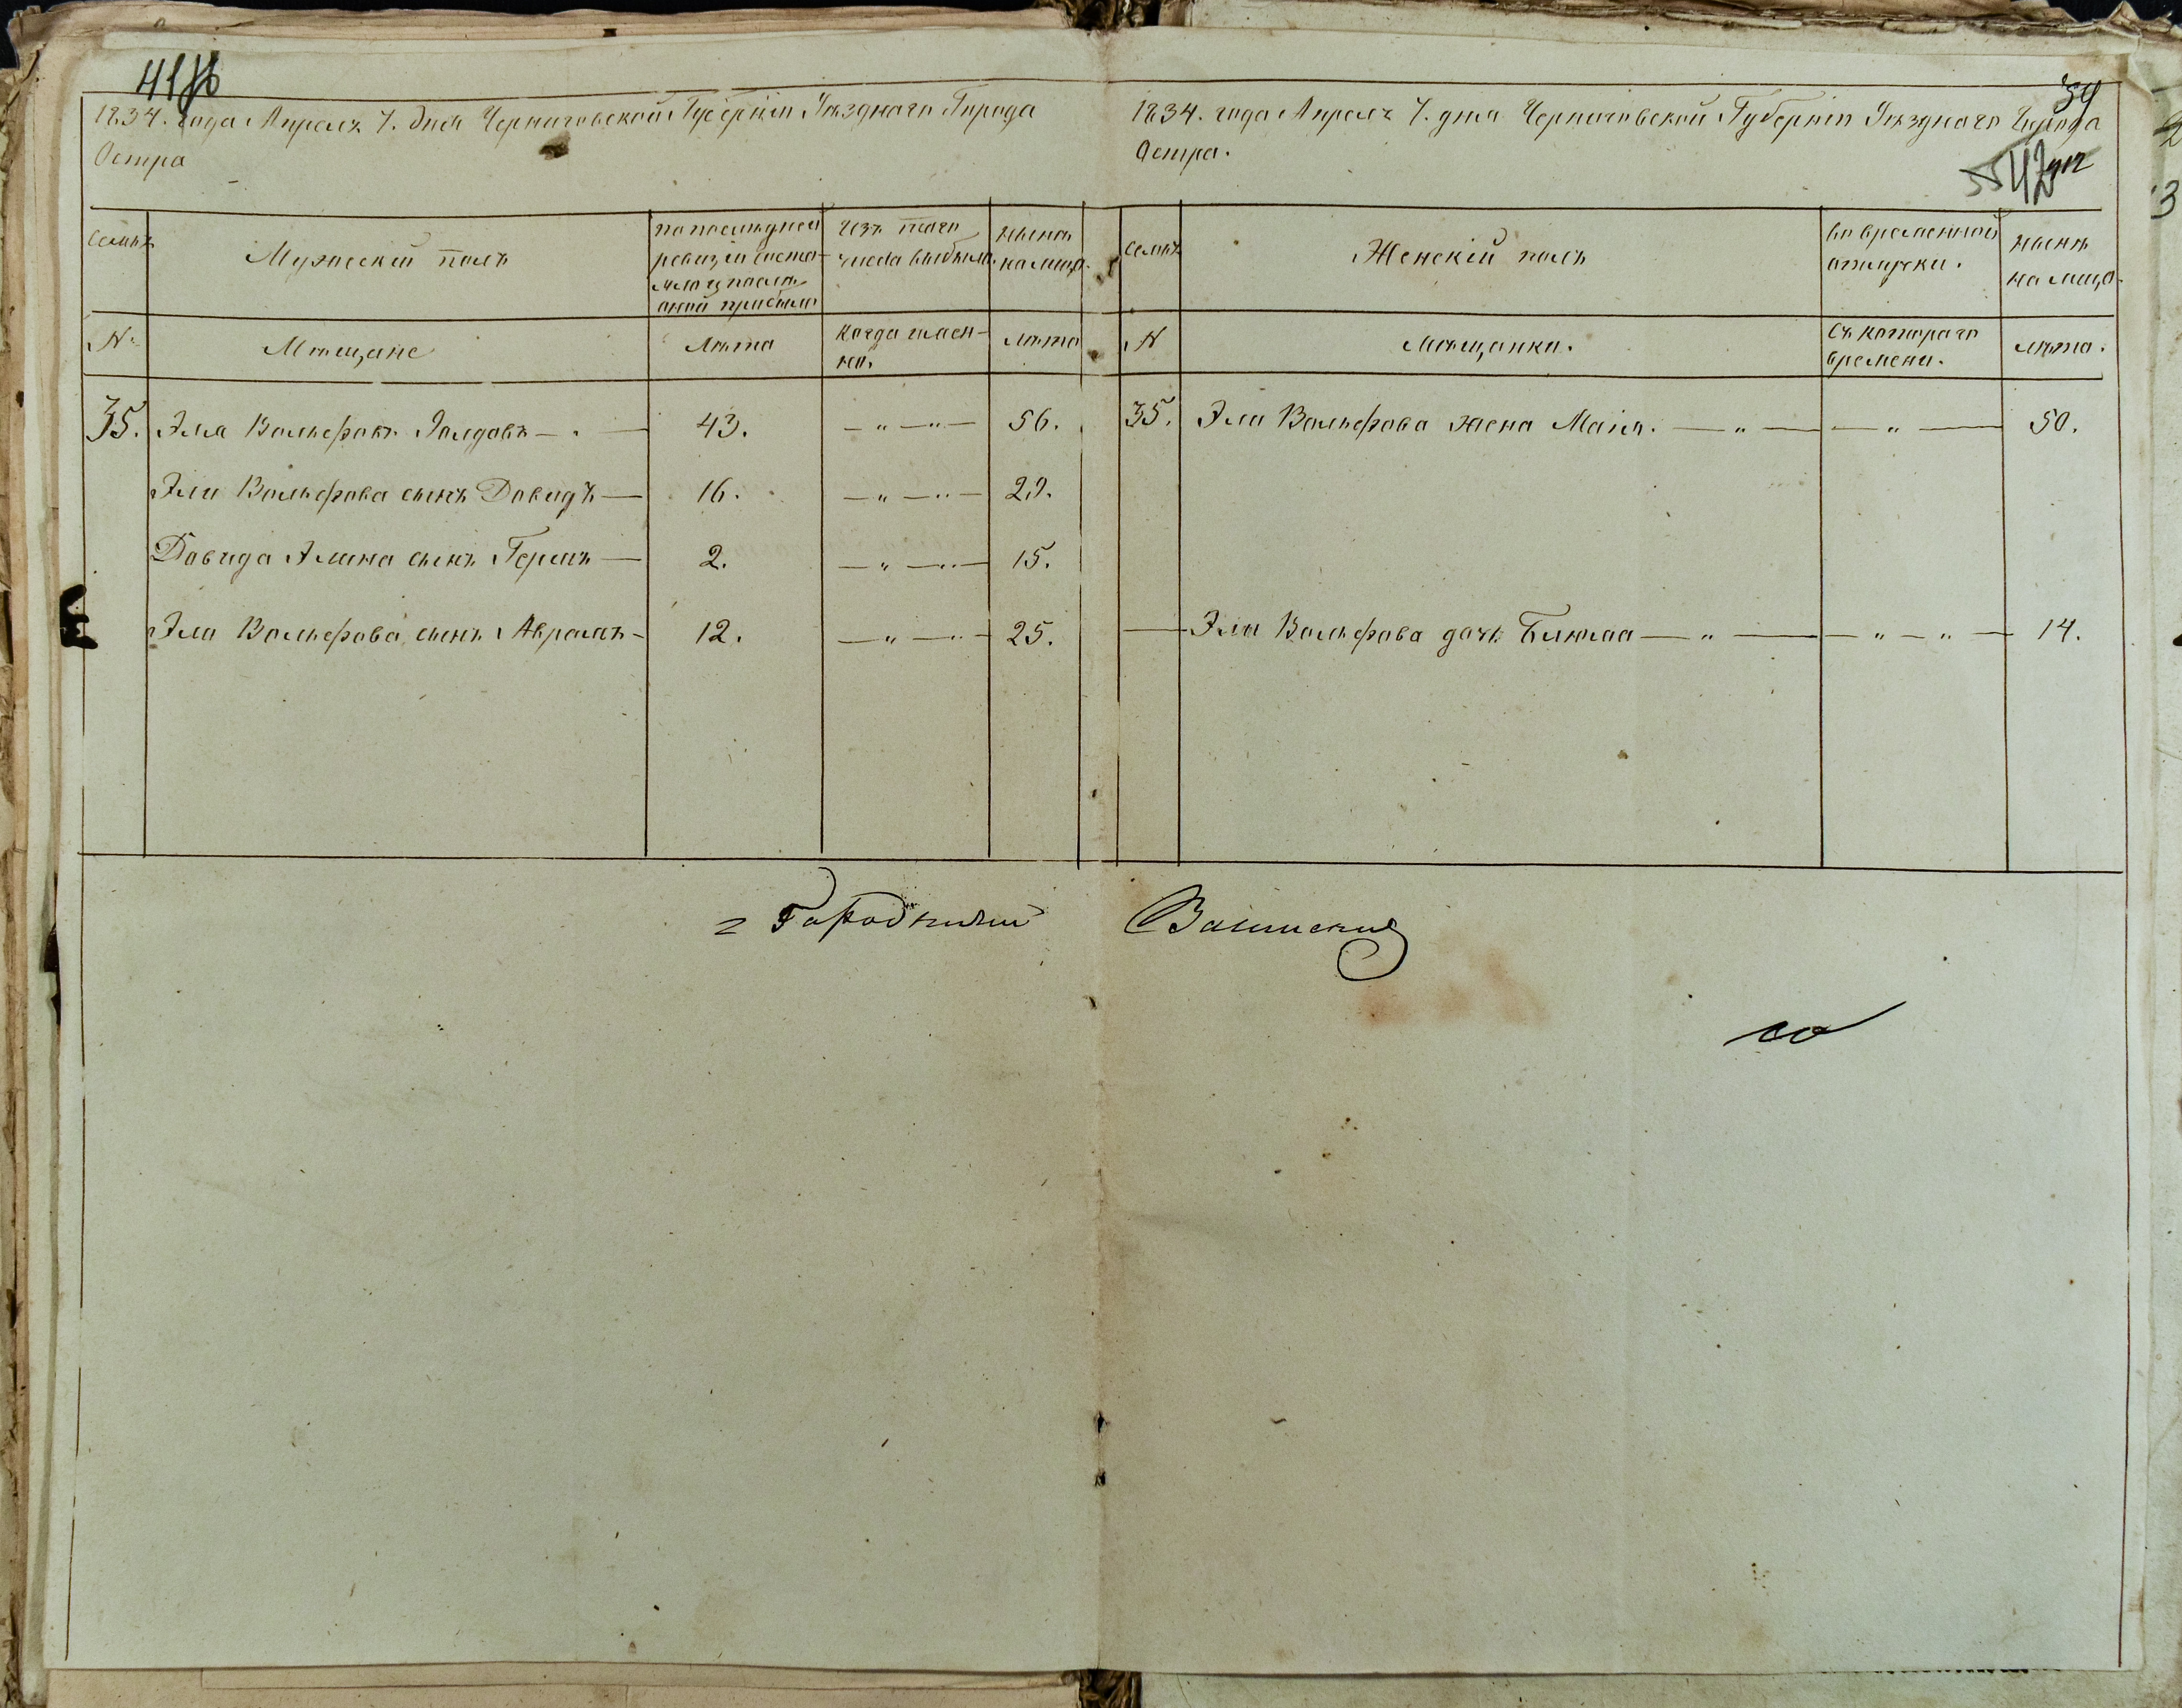 1834. года Апреля 7. дня Черниговской Губерніи Уѣзднаго Города
Остра
Семьи
Мужескій полъ
по последней
ревизіи состо-
яло и после
оной прибыло
Изъ того
числа выбыло
ныне
на лицо.
№
Мѣщане
Лѣта
когда имен-
но.
лѣта
35. Эла Вольфовъ — 43. — " — " — 56.
Эли Вольфова сынъ Давидъ — 16. — " — " — 29.
Давида Элина сынъ — 2. — " — " — 15.
Эли Вольфова сынъ Абрамъ — 12. — " — " — 25.
1834. года Апреля 7. дня Черниговской Губерніи Уѣзднаго Города
Остра.
54
42
Семьи
Женскій полъ
во временной
отлучки.
ныне
на лицо.
№
Мѣщанки.
съ котораго
времени.
лѣта.
35. Эли Вольфова жена — " — — " — 50.
— Эли Вольфова дочь — " — — " — " — 14.